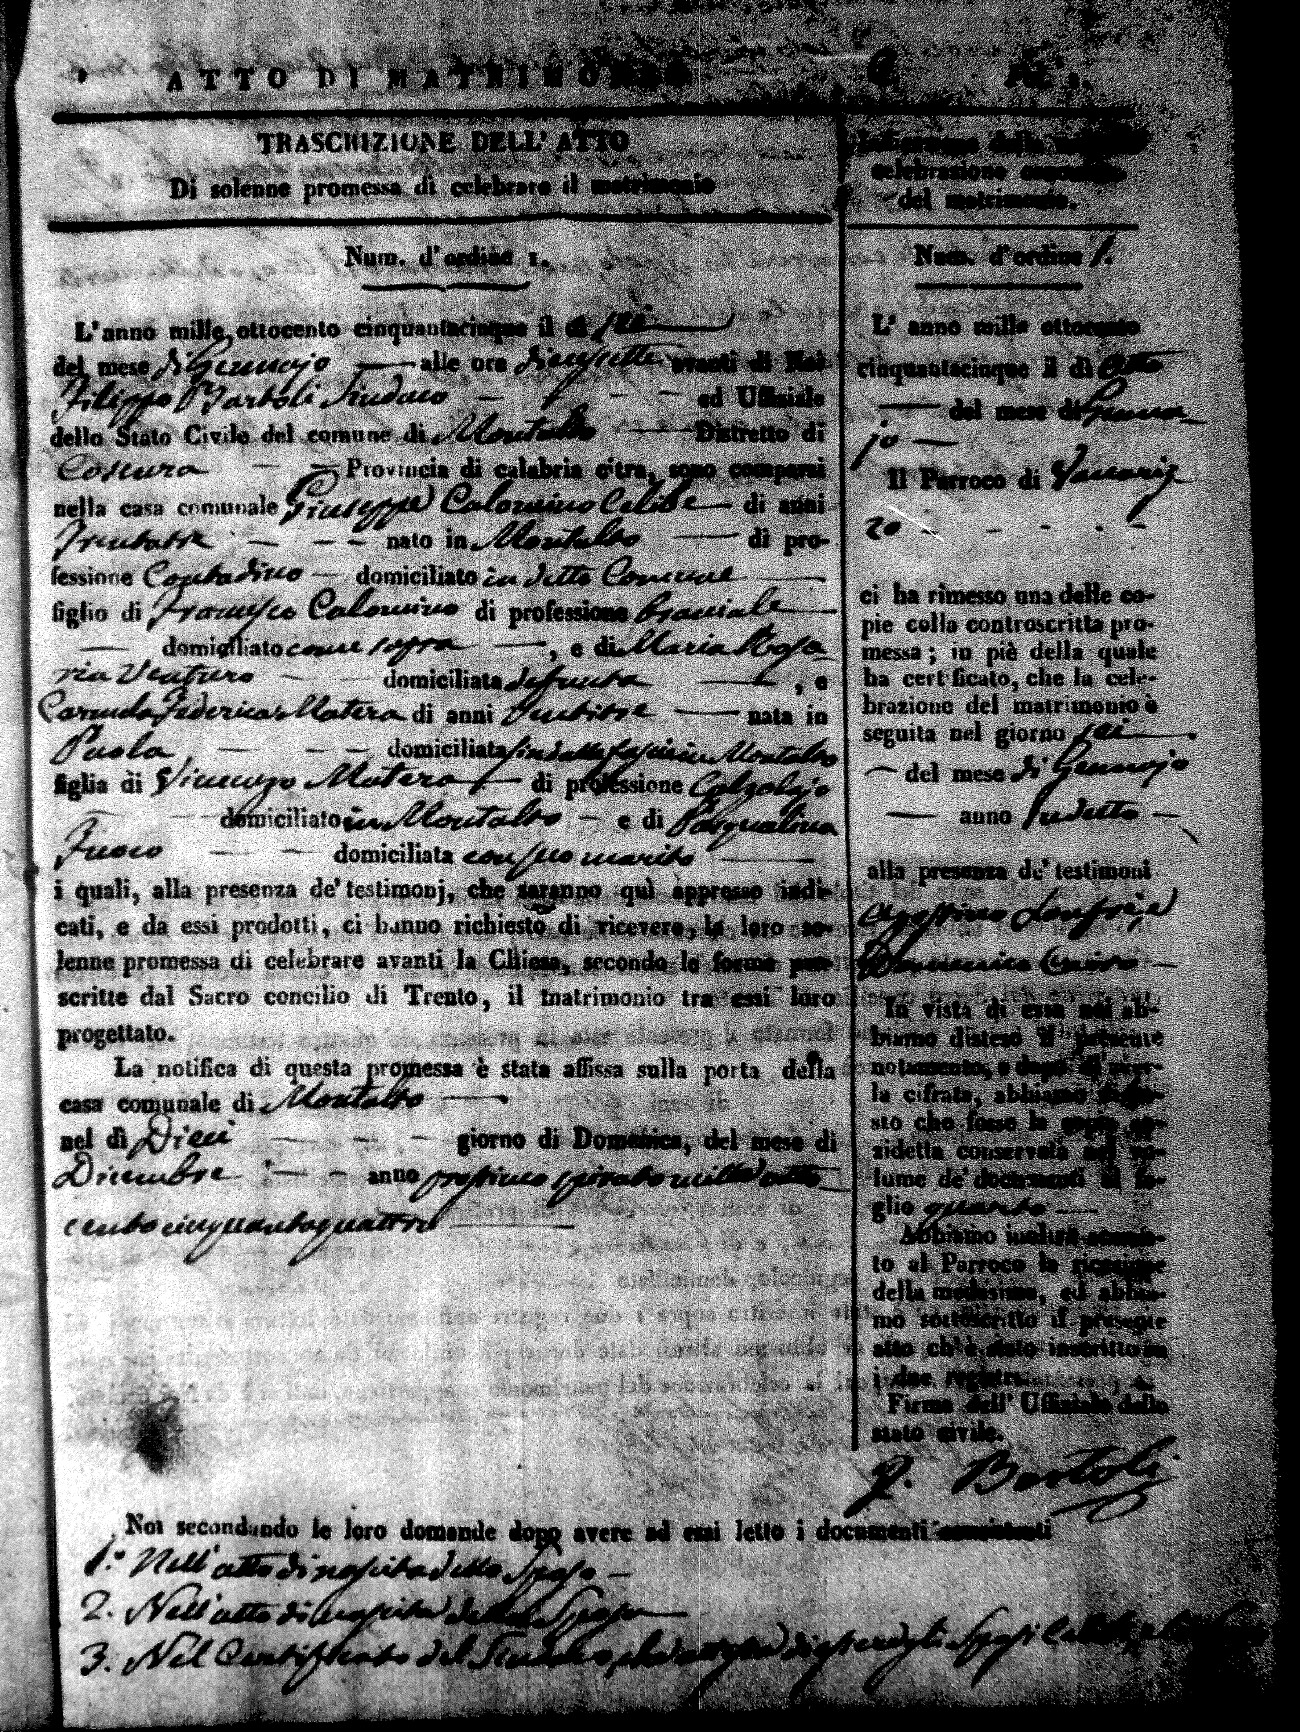 ATTO DI MATRIMONIO
TRASCRIZIONE DELL' ATTO
Di solenne promessa di celebrare il matrimonio
Num. d'ordine 1.
L'anno mille ottocento cinquantacinque il dì sei
del mese di Gennajo alle ore diecisette avanti di Noi
Filippo Bartoli Sindaco ed Uffiziale
dello Stato Civile del comune di Montalto Distretto di
Cosenza Provincia di calabria citra, sono comparsi
nella casa comunale Giuseppe Calomino Celibe di anni
Trentatre nato in Montalto di pro-
fessione Contadino domiciliato in detto Comune
figlio di Francesco Calomino di professione Bracciale
domigliato come sopra , e di Maria Rosa
ria Venturo domiciliata defunta , e
Carmela Federica Matera di anni Ventitre nata in
Paola domiciliata in Montalto
figlia di Vincenzo Matera di professione Calzolajo
domiciliato in Montalto e di Pasqualina
Fusco domiciliata con suo marito
i quali, alla presenza de' testimonj, che saranno quì appresso indi-
cati, e da essi prodotti, ci hanno richiesto di ricevere, la loro so-
lenne promessa di celebrare avanti la Chiesa, secondo le forme pre-
scritte dal Sacro concilio di Trento, il matrimonio tra essi loro
progettato.
La notifica di questa promessa è stata affissa sulla porta della
casa comunale di Montalto
nel dì Dieci giorno di Domenica, del mese di
Dicembre anno prossimo spirato mille otto
cento cinquantaquattro
celebrazione
del matrimonio.
Num. d'ordine 1.
L' anno mille ottocento
cinquantacinque il dì Otto
del mese di Genna
jo
Il Parroco di Vaccariz
zo
ci ha rimesso una delle co-
pie colla controscritta pro-
messa; in piè della quale
ha certificato, che la cele-
brazione del matrimonio è
seguita nel giorno sei
del mese di Gennajo
anno sudetto
alla presenza de' testimoni
Agostino
Domenico
In vista di essa noi ab-
biamo disteso il presente
notamento, e dopo di aver-
la cifrata, abbiamo dispo-
sto che fosse la copia an-
zidetta conservata nel vo-
lume de' documenti al fo-
glio quarto
Abbiamo inoltre accusa-
to al Parroco la ricezione
della medesima, ed abbia-
mo sottoscritto il presente
atto ch'è stato inscritto su
i due registri
Firma dell' Uffiziale dello
stato civile.
F. Bartoli
Noi secondando le loro domande dopo avere ad essi letto i documenti consistenti
1.° Nell'atto di nascita dello Sposo
2. Nell'atto di nascita della Sposa
3. Nel Certificato del Sindaco di essere gli Sposi